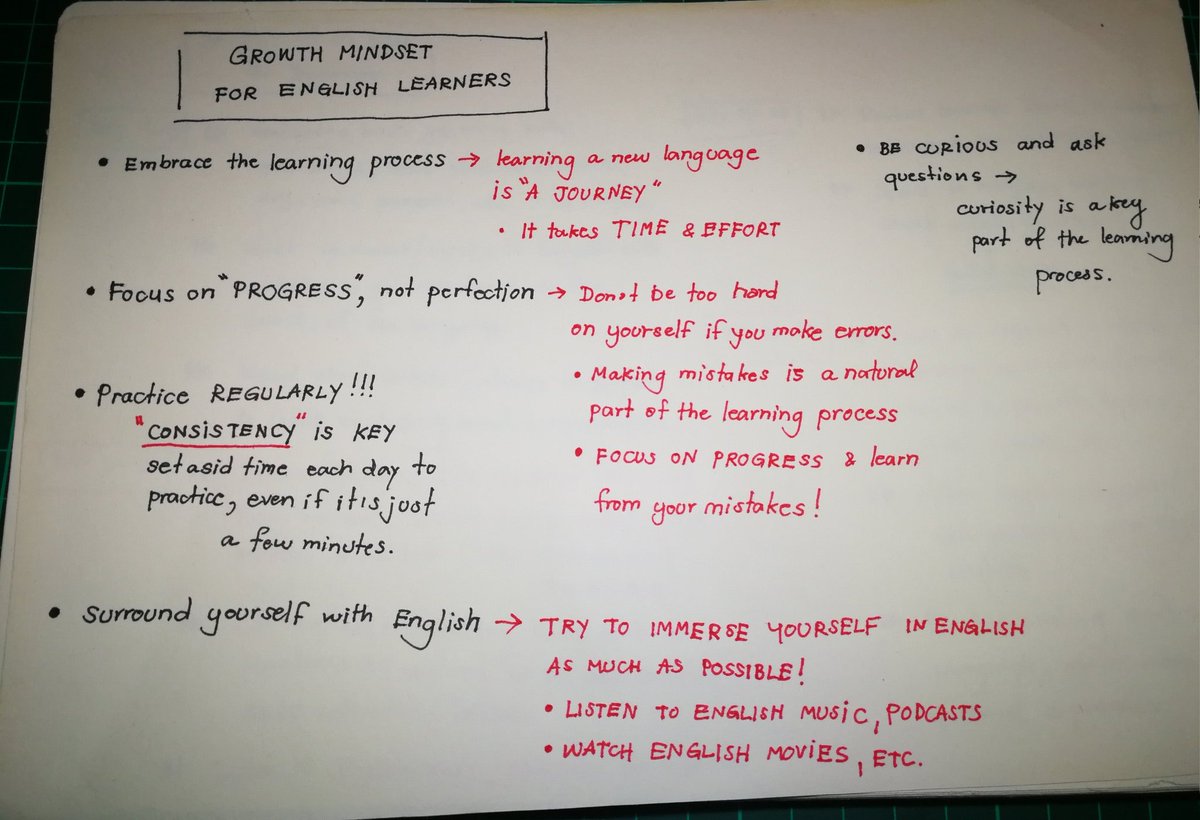 GROWTH MINDSET
FOR ENGLISH LEARNERS
• Embrace the learning process → learning a new language
is "A JOURNEY"
• It takes TIME & EFFORT
• BE curious and ask
questions →
curiosity is a key
part of the learning
process.
• Focus on "PROGRESS", not perfection → Donot be too hard
on yourself if you make errors.
• Making mistakes is a natural
part of the learning process
• FOCUS ON PROGRESS & learn
from your mistakes!
• Practice REGULARLY!!!
"CONSISTENCY" is KEY
set asid time each day to
practice, even if it is just
a few minutes.
• Surround yourself with English → TRY TO IMMERSE YOURSELF IN ENGLISH
AS MUCH AS POSSIBLE!
• LISTEN TO ENGLISH MUSIC, PODCASTS
• WATCH ENGLISH MOVIES, ETC.